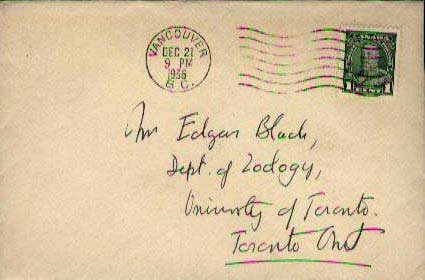 VANCOUVER
DEC 21
9 PM
1936
B.C.
CANADA
1 CENT 1
Mr Edgar Black,
Dept. of Zoology,
University of Toronto.
Toronto Ont